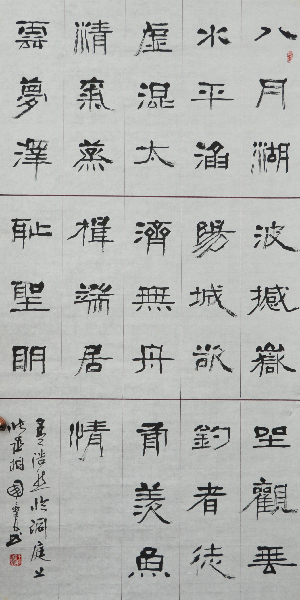 八月湖
水平涵
虛混太
清氣蒸
雲夢澤
波撼嶽
陽城欲
濟無舟
楫端居
耻聖明
坐觀垂
釣者徒
有羨魚
情
孟浩然臨洞庭上
張丞相國